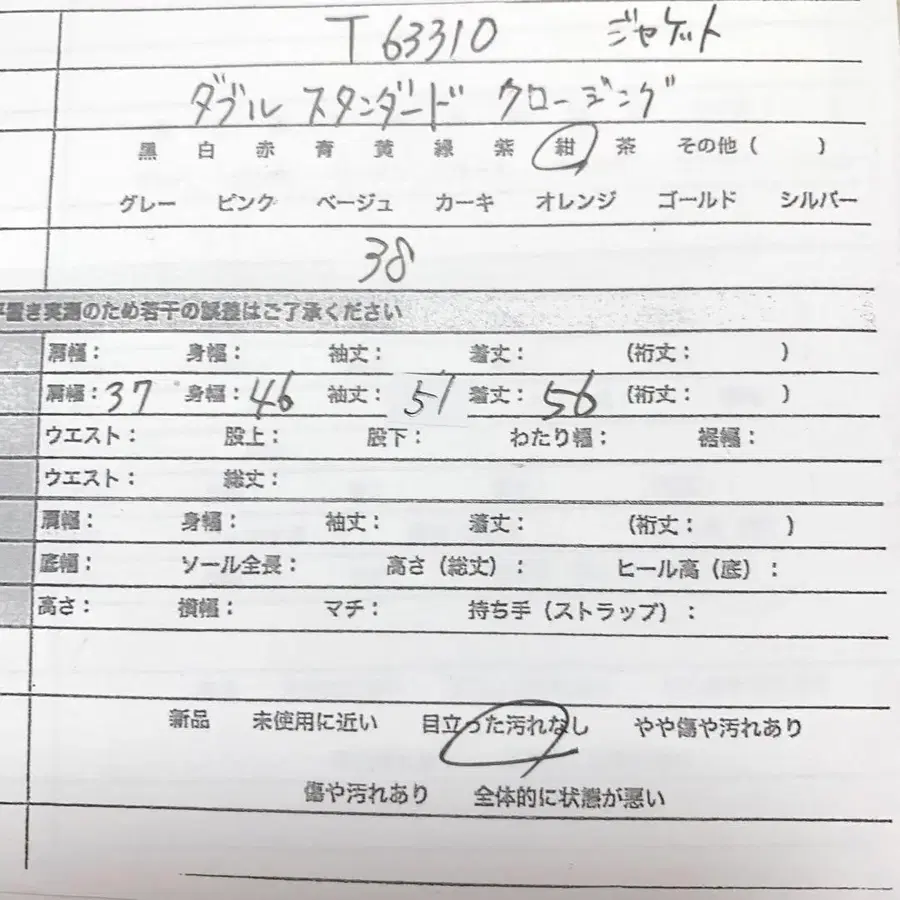 T63310 ジャケット
ダブル スタンダード クロージング
黒 白 赤 青 黄 緑 紫 紺 茶 その他( )
グレー ピンク ベージュ カーキ オレンジ ゴールド シルバー
38
置き実測のため若干の誤差はご了承ください
肩幅: 身幅: 袖丈: 着丈: (裄丈: )
肩幅:37 身幅:46 袖丈:51 着丈:56 (裄丈: )
ウエスト: 股上: 股下: わたり幅: 裾幅:
ウエスト: 総丈:
肩幅: 身幅: 袖丈: 着丈: (裄丈: )
底幅: ソール全長: 高さ(総丈): ヒール高(底):
高さ: 横幅: マチ: 持ち手(ストラップ):
新品 未使用に近い 目立った汚れなし やや傷や汚れあり
傷や汚れあり 全体的に状態が悪い